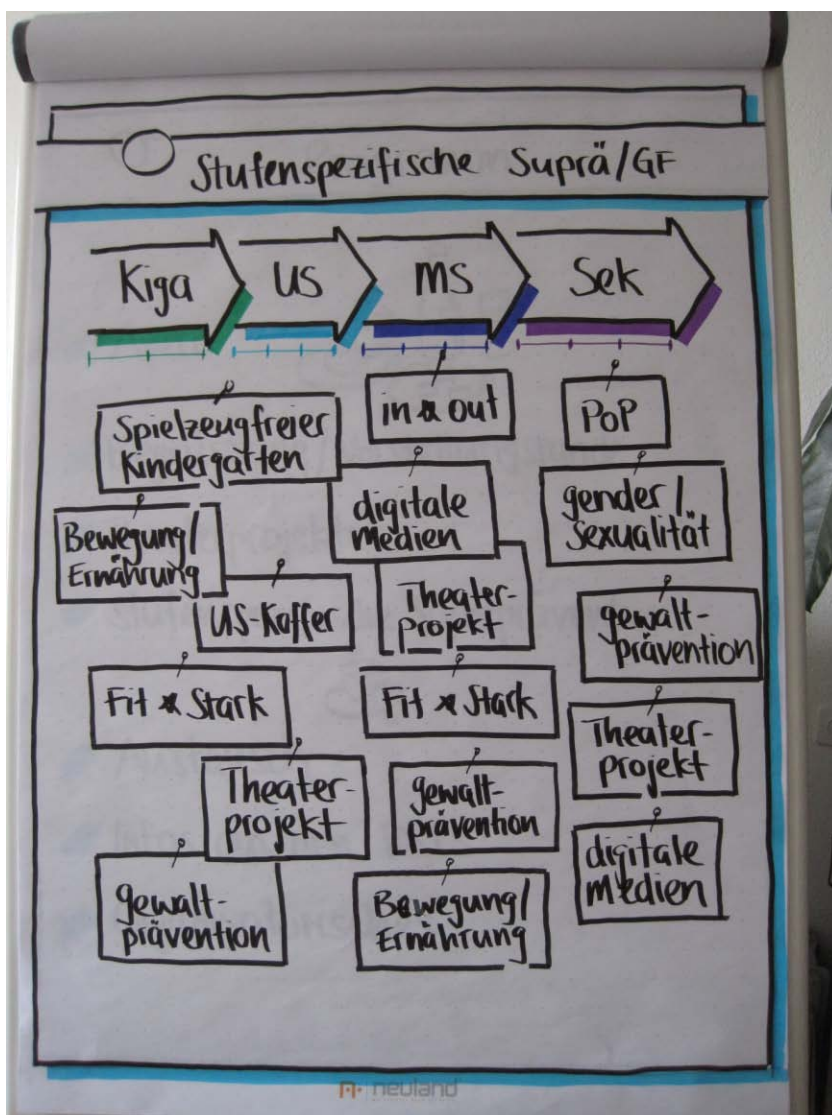 Stufenspezifische Suprä/GF
Kiga
US
MS
Sek
Spielzeugfreier
Kindergarten
Bewegung/
Ernährung
US-Koffer
Fit & Stark
Theater-
projekt
gewalt-
prävention
in & out
digitale
Medien
Theater-
projekt
Fit & Stark
gewalt-
prävention
Bewegung/
Ernährung
PoP
gender/
Sexualität
gewalt-
prävention
Theater-
projekt
digitale
Medien
neuland